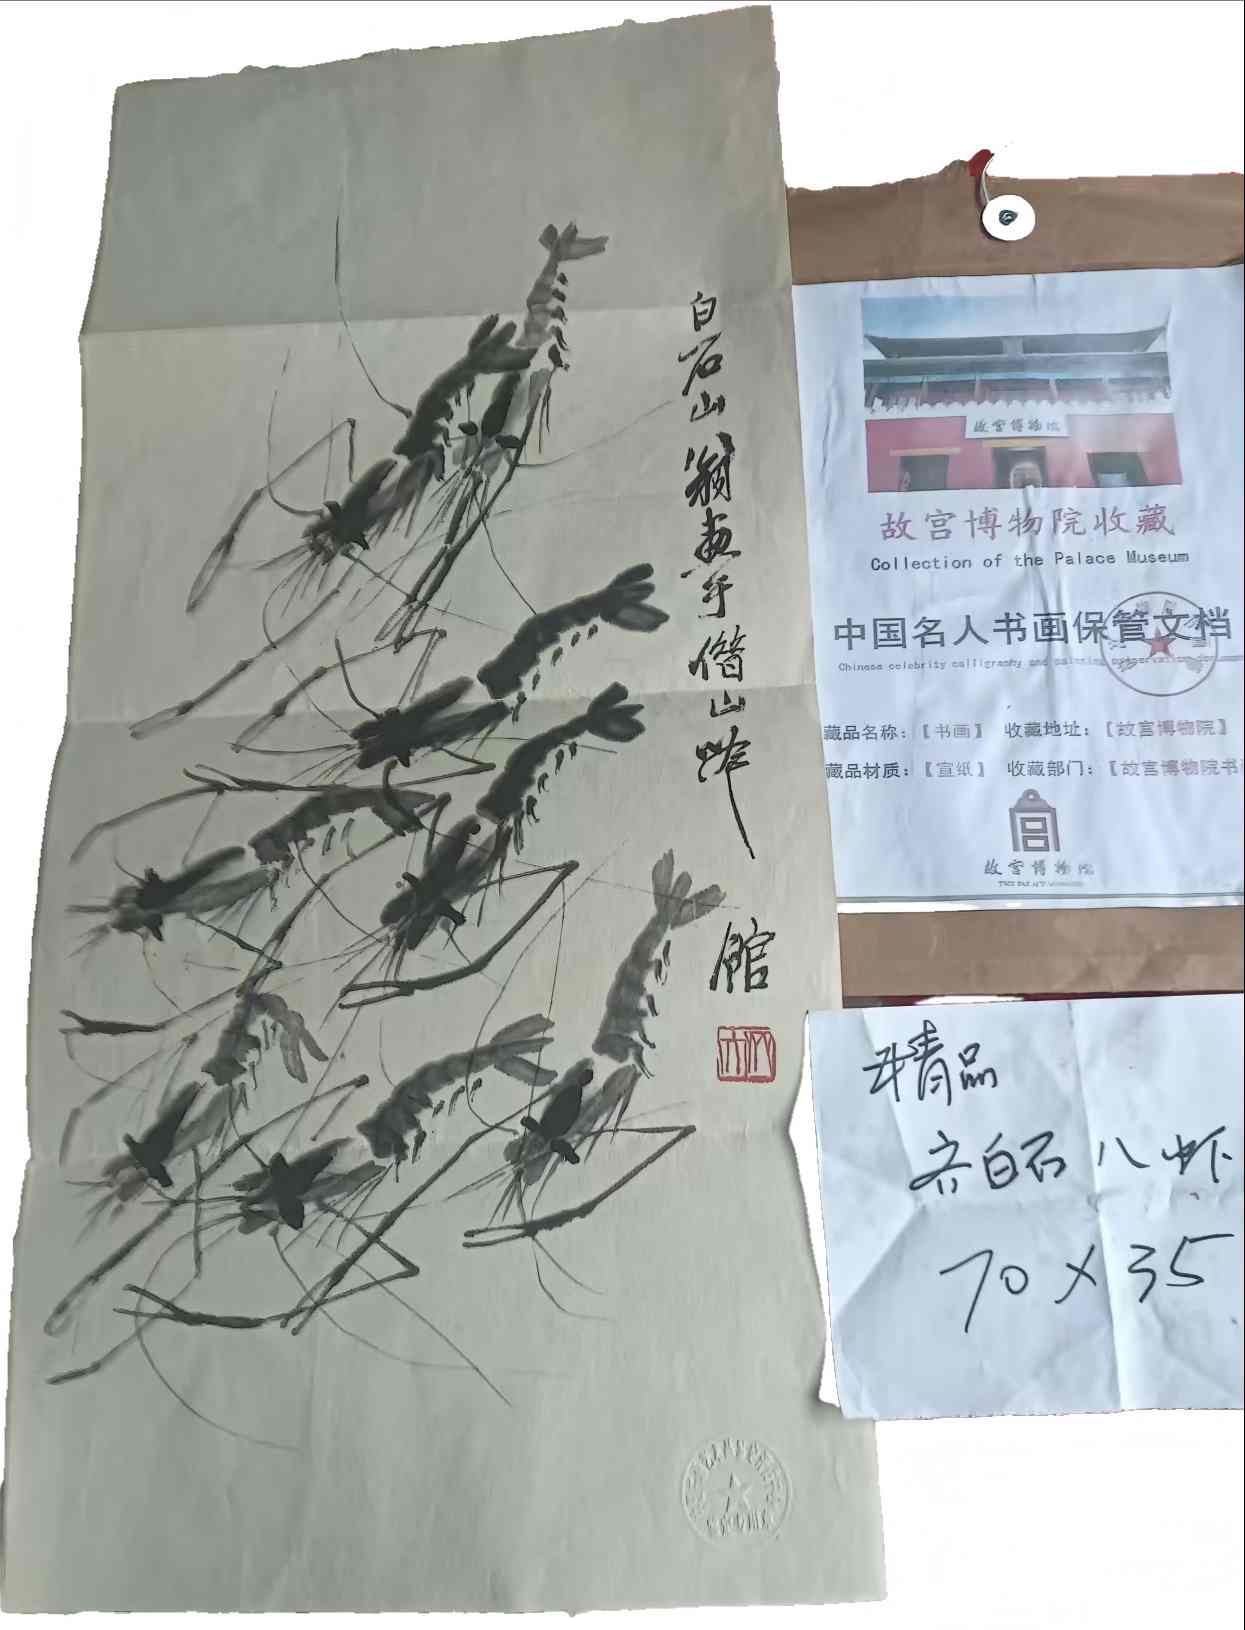 白石山翁畫於借山吟
館
故宫博物院
故宫博物院收藏
Collection of the Palace Museum
中国名人书画保管文档
Chinese celebrity calligraphy and painting preservation
藏品名称：【书画】 收藏地址：【故宫博物院】
藏品材质：【宣纸】 收藏部门：【故宫博物院书
故宫博物院
精品
齐白石八虾
70×35